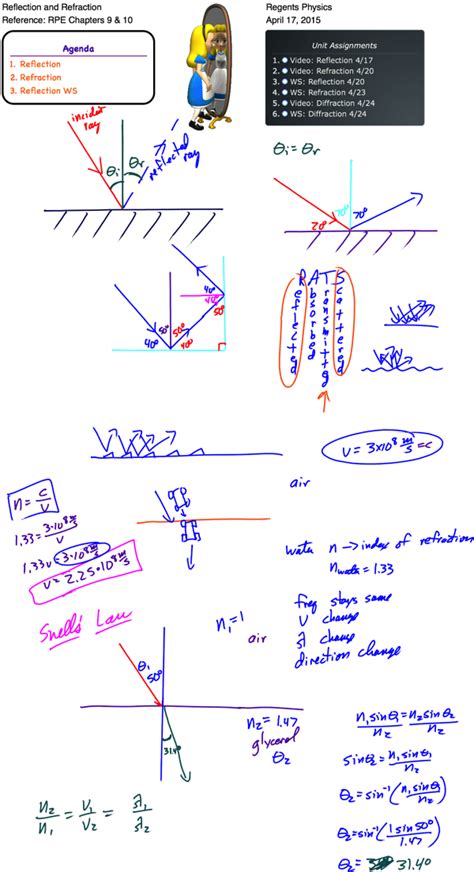 Reflection and Refraction
Reference: RPE Chapters 9 & 10
Regents Physics
April 17, 2015
Agenda
1. Reflection
2. Refraction
3. Reflection WS
Unit Assignments
1. Video: Reflection 4/17
2. Video: Refraction 4/20
3. WS: Reflection 4/20
4. WS: Refraction 4/23
5. Video: Diffraction 4/24
6. WS: Diffraction 4/24
incident
ray
θi
θr
reflected
ray
θi = θr
20°
70°
70°
40°
50°
50°
40°
50°
40°
40°
RATS
Reflected
Absorbed
Transmitted
Scattered
v = 3x10⁸ m/s = c
air
n = c/v
1.33 = 3·10⁸ m/s / v
1.33v = 3·10⁸ m/s
v = 2.25·10⁸ m/s
water n → index of refraction
n water = 1.33
freq stays same
v change
λ change
direction change
Snell's Law
n₁ = 1
air
θi
50°
n₂ = 1.47
glycerol
θ₂
31.4°
n₂/n₁ = v₁/v₂ = λ₁/λ₂
n₁sinθ₁/n₂ = n₂sinθ₂/n₂
sinθ₂ = n₁sinθ₁/n₂
θ₂ = sin⁻¹(n₁sinθ₁/n₂)
θ₂ = sin⁻¹(1 sin50°/1.47)
θ₂ = 31.4°